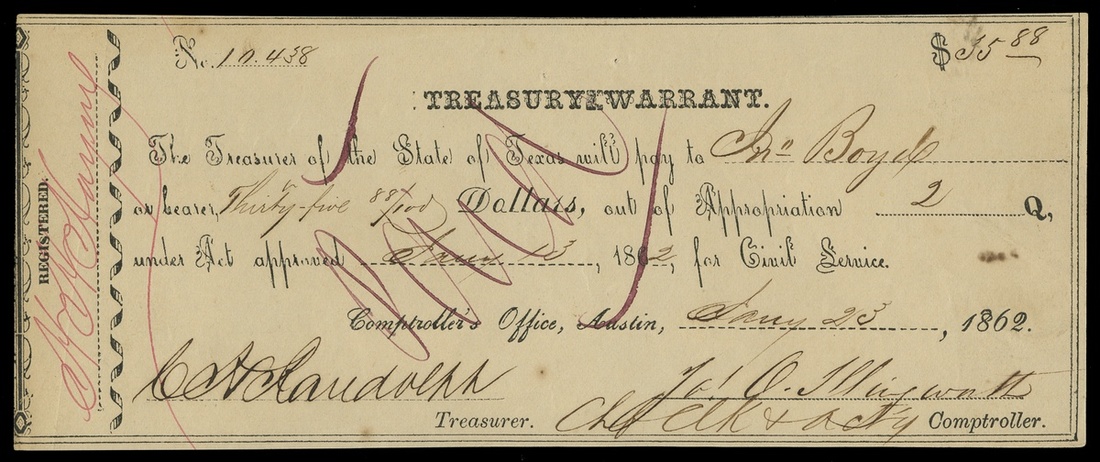 No. 10.438
$35 88
TREASURY WARRANT.
The Treasurer of the State of Texas will pay to Jno Boyd
or bearer, Thirty-five 88/100 Dollars, out of Appropriation 2 Q,
under Act approved Jany 13, 1862, for Civil Service.
Comptroller's Office, Austin, Jany 23, 1862.
C H Randolph
Treasurer.
Jas. O. Illingworth
Ch Clk & Actg Comptroller.
REGISTERED.